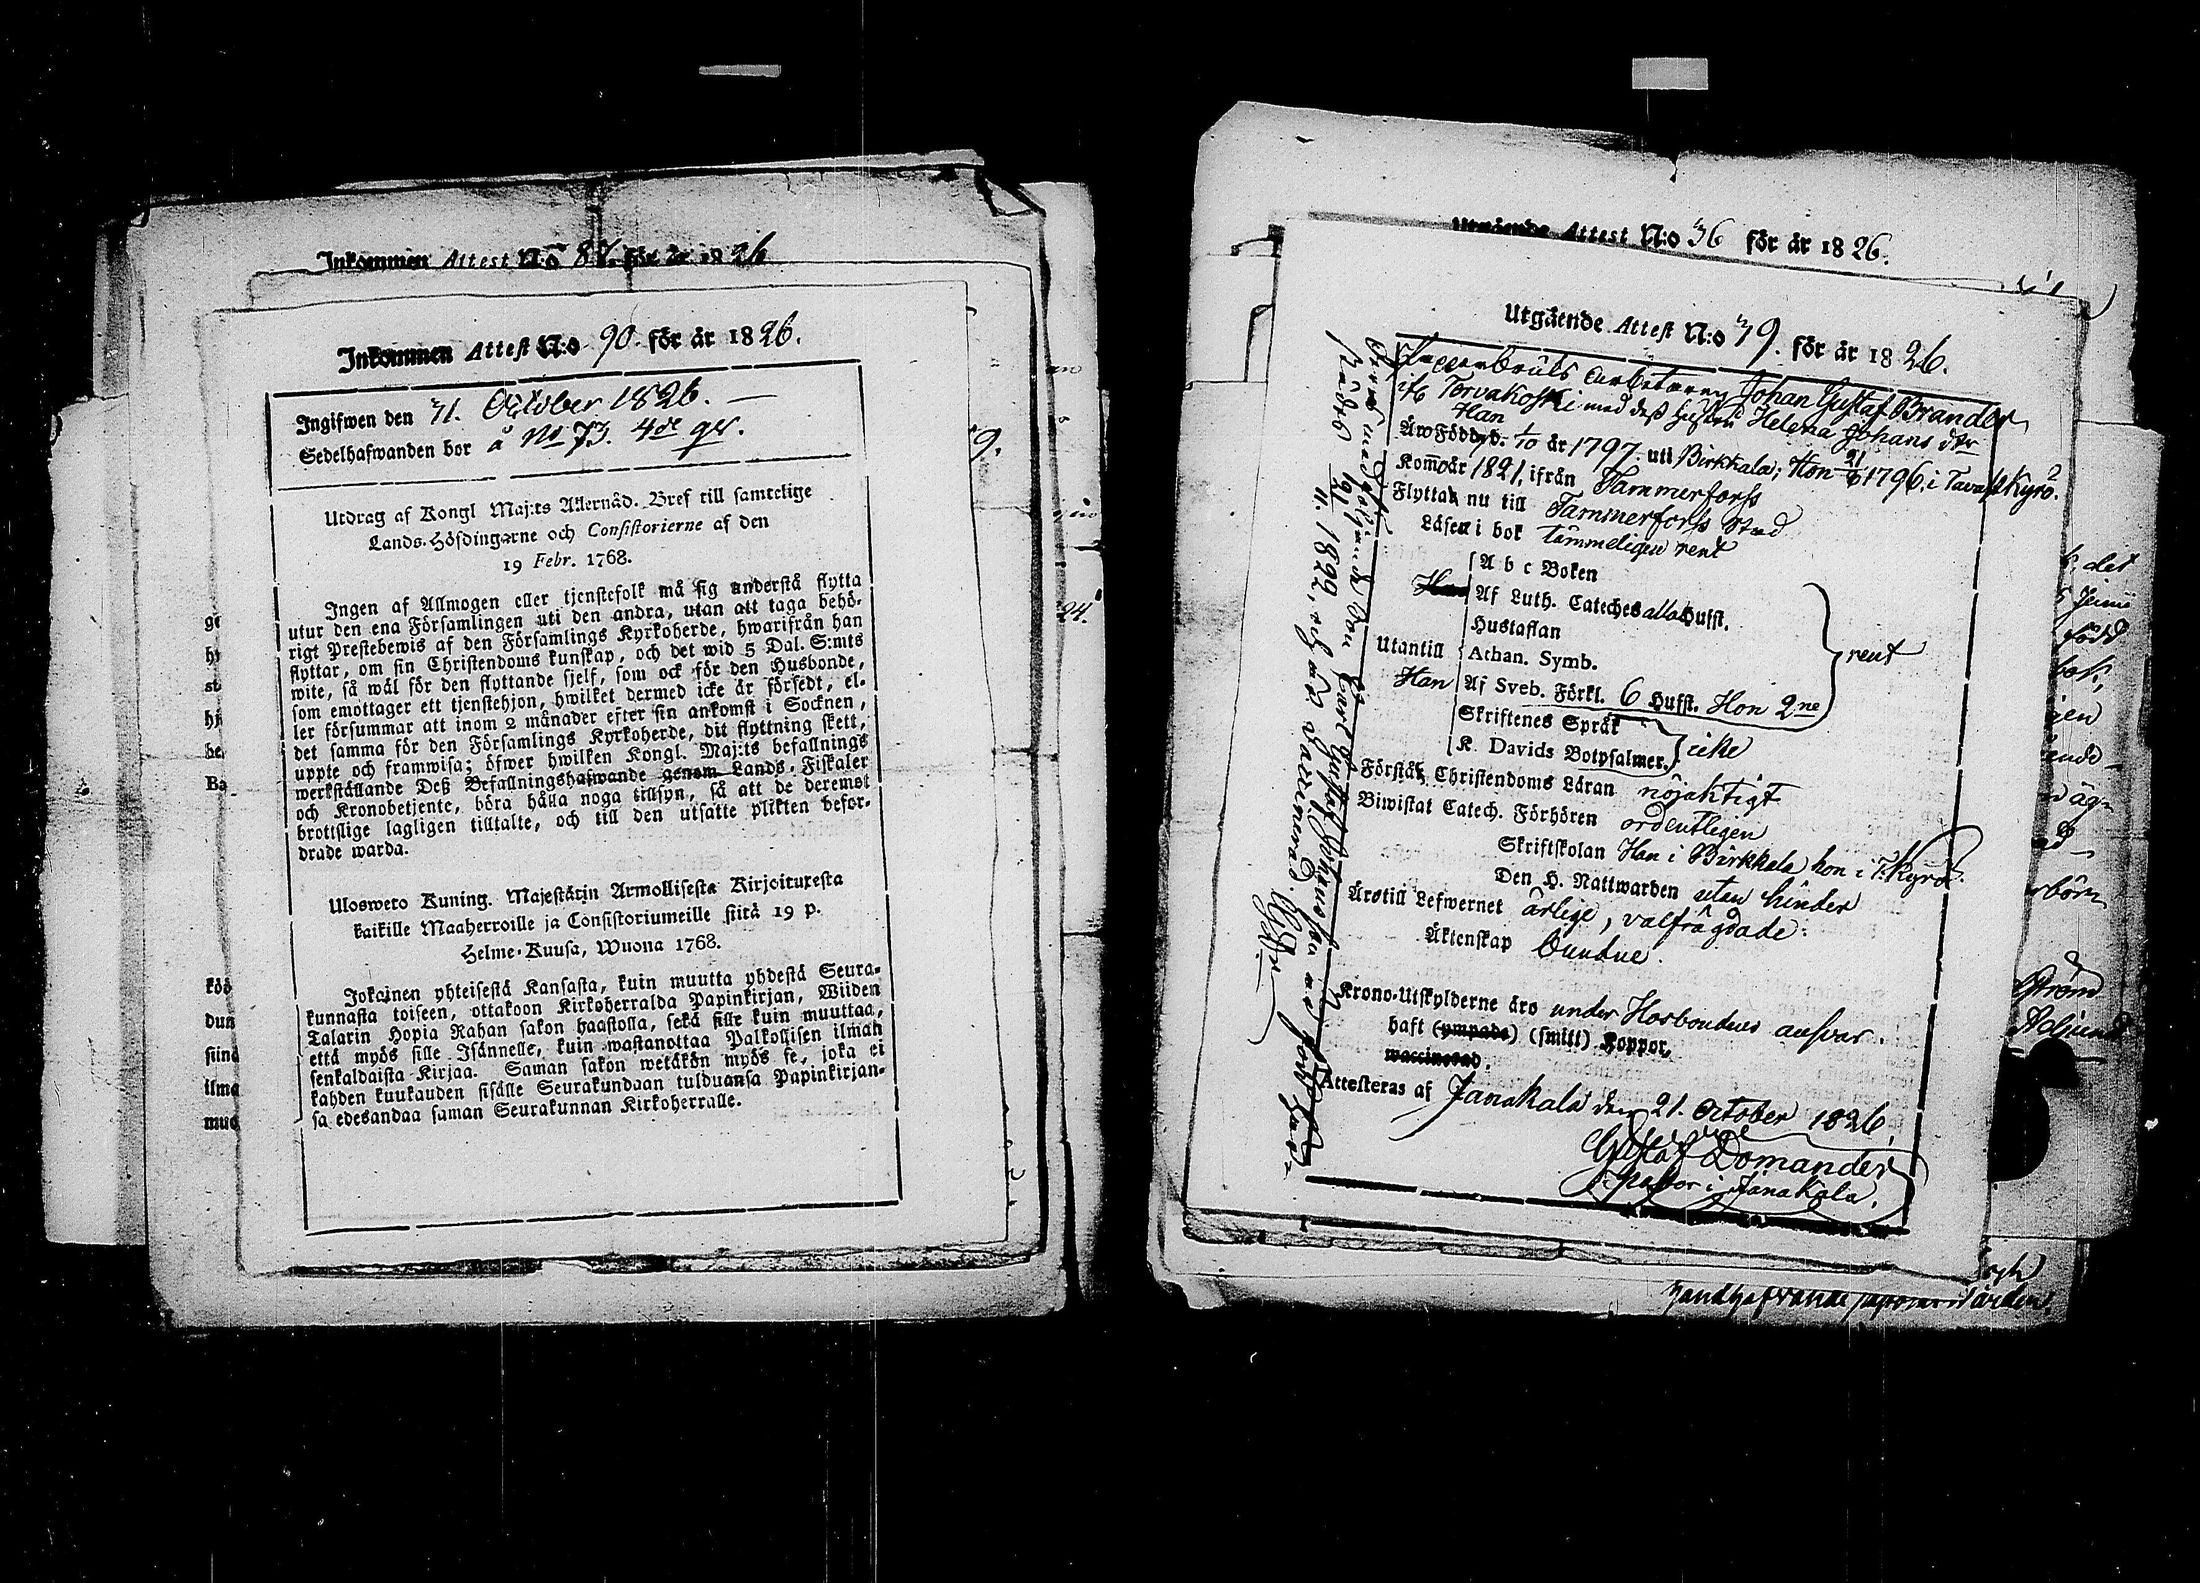 Inkommen Attest N:o 87. för år 1826
Inkommen Attest N:o 90. för år 1826.
Ingifwen den 31. October 1826. —
Sedelhafwanden bor å No 73. 4de qr.
Utdrag af Kongl Maj:ts Allernåd. Bref till samtelige
Lands-Höfdingarne och Consistorierne af den
19 Febr. 1768.
Ingen af Allmogen eller tjenstefolk må sig understå flytta
utur den ena Församlingen uti den andra, utan att taga behö-
rigt Prestebewis af den Församlings Kyrkoherde, hwarifrån han
flyttar, om sin Christendoms kunskap, och det wid 5 Dal. S:mts
wite, så wäl för den flyttande sjelf, som ock för den Husbonde,
som emottager ett tjenstehjon, hwilket dermed icke är försedt, el-
ler försummar att inom 2 månader efter sin ankomst i Socknen,
det samma för den Församlings Kyrkoherde, dit flyttning skett,
uppte och framwisa; öfwer hwilken Kongl. Maj:ts befallnings
werkställande Deß Befallningshafwande genom Lands-Fiskaler
och Kronobetjente, böra hålla noga tillsyn, så att de deremot
brottslige lagligen tilltalte, och till den utsatte plikten befor-
drade warda.
Ulosweto Kuning. Majestätin Armollisesta Kirjoituxesta
kaikille Maaherroille ja Consistoriumeille siitä 19 p.
Helme-Kuusa, Wuona 1768.
Jokainen yhteisestä Kansasta, kuin muutta yhdestä Seura-
kunnasta toiseen, ottakoon Kirkoherralda Papinkirjan, Wiiden
Talarin Hopia Rahan sakon haastolla, sekä sille kuin muuttaa,
että myös sille Isännelle, kuin wastanottaa Palkollisen ilman
senkaldaista Kirjaa. Saman sakon wetäkön myös se, joka ei
kahden kuukauden sisälle Seurakundaan tulduansa Papinkirjan-
sa edesandaa saman Seurakunnan Kirkoherralle.
Utgående Attest N:o 36 för år 1826.
Utgående Attest N:o 39. för år 1826.
Pappersbruks Arbetaren Johan Gustaf Brander
ifr Tervakoski med deß hustru Helena Johans dtr
Han
Äro Född d. 1/10 år 1797 uti Birkkala; Hon 1796, i Tavastkyro.
Kom̄o år 1821, ifrån Tammerforss
Flytta nu till Tammerforss stad
Läsa i bok tämmeligen rent
A b c Boken
Af Luth. Cateches alla Hufst.
Hustaflan
Utantill Athan. Symb. rent
Han Af Sveb. Förkl. 6 Hufst. Hon 2ne
Skriftenes Språk
K. Davids Botpsalmer. icke
Förstå Christendoms Läran nöjaktigt
Biwistat Catech. Förhören ordentligen
Skriftskolan Han i Birkkala hon i T.Kyro.
Den H. Nattwarden utan hinder
Äro till Lefwernet ärlige, välfrägdade
Äktenskap bundne.
Krono-Utskylderne äro under Hosbondens ansvar.
haft (ympade) (smitt) Koppor,
waccinerad.
Attesteras af Janakkala den 21. October 1826,
Gustaf Domander
Pastor i Janakkala.